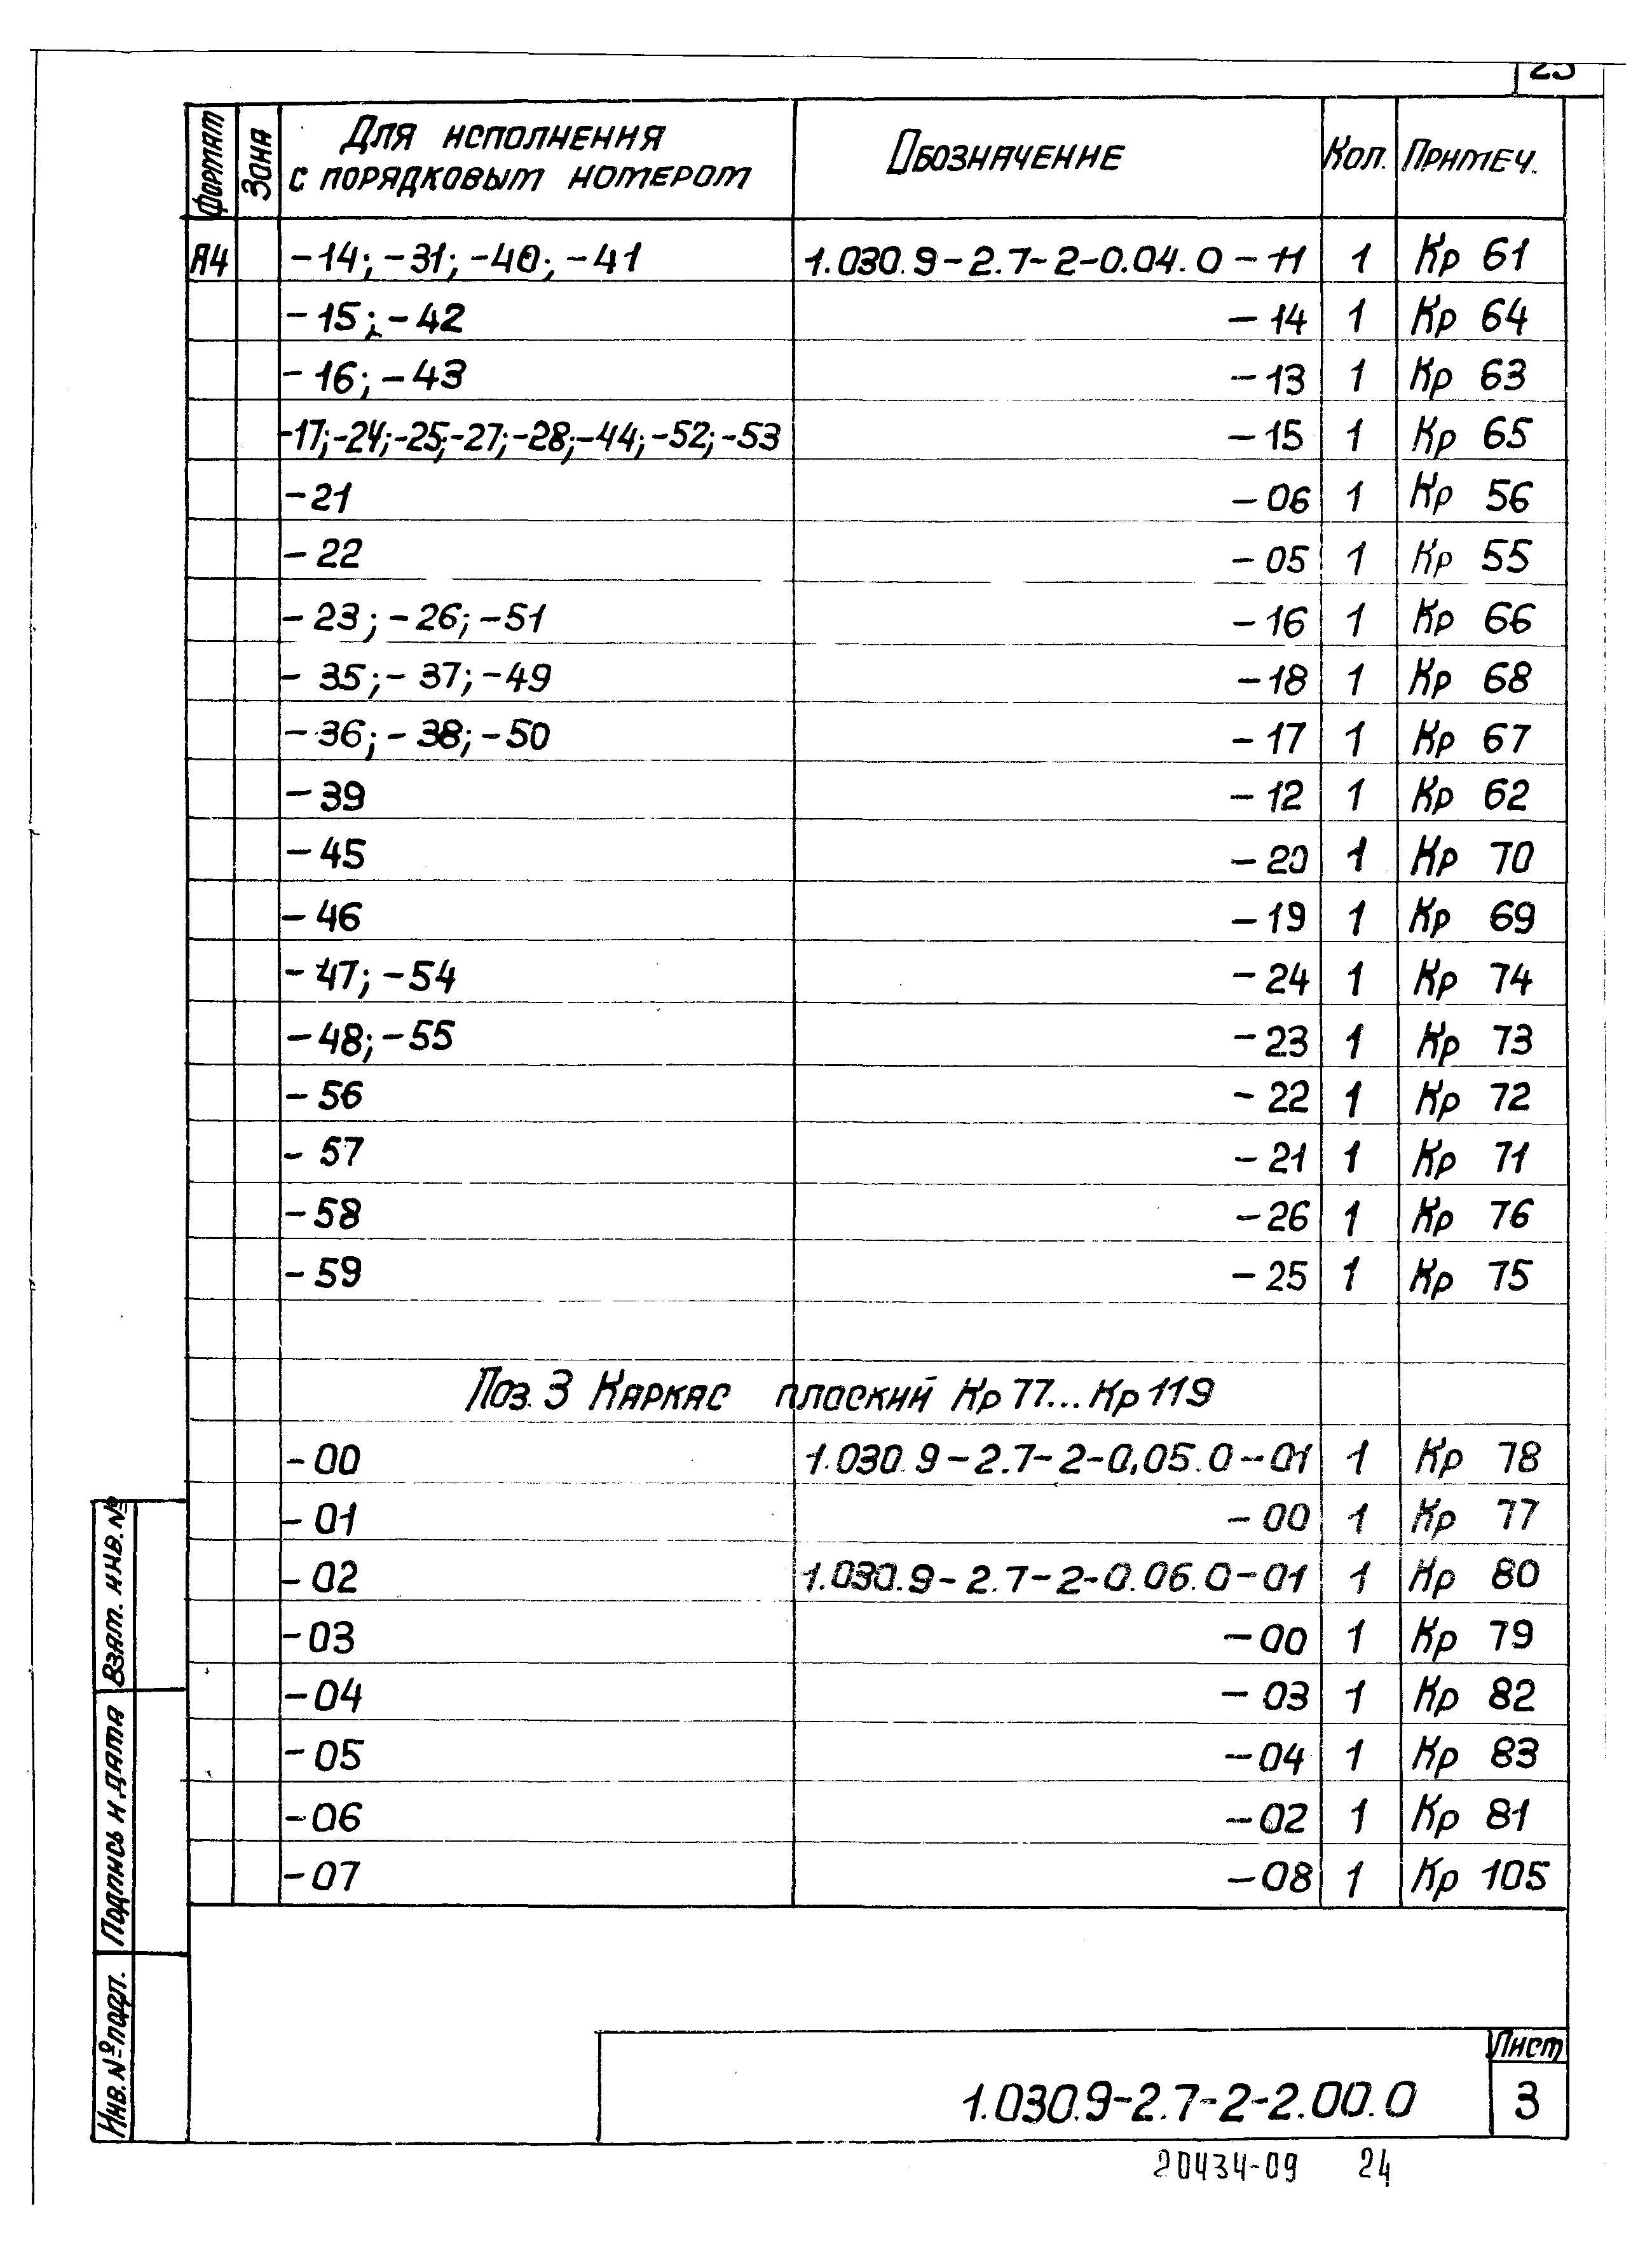 23
Формат Зона Для исполнения с порядковым номером Обозначение Кол. Примеч.
А4 -14; -31; -40; -41 1.030.9-2.7-2-0.04.0 -11 1 Кр 61
-15; -42 -14 1 Кр 64
-16; -43 -13 1 Кр 63
-17; -24; -25; -27; -28; -44; -52; -53 -15 1 Кр 65
-21 -06 1 Кр 56
-22 -05 1 Кр 55
-23; -26; -51 -16 1 Кр 66
-35; -37; -49 -18 1 Кр 68
-36; -38; -50 -17 1 Кр 67
-39 -12 1 Кр 62
-45 -20 1 Кр 70
-46 -19 1 Кр 69
-47; -54 -24 1 Кр 74
-48; -55 -23 1 Кр 73
-56 -22 1 Кр 72
-57 -21 1 Кр 71
-58 -26 1 Кр 76
-59 -25 1 Кр 75
Поз. 3 Каркас плоский Кр 77... Кр 119
-00 1.030.9-2.7-2-0,05.0 -01 1 Кр 78
-01 -00 1 Кр 77
-02 1.030.9-2.7-2-0.06.0-01 1 Кр 80
-03 -00 1 Кр 79
-04 -03 1 Кр 82
-05 -04 1 Кр 83
-06 -02 1 Кр 81
-07 -08 1 Кр 105
Взам. инв. №
Подпись и дата
Инв. № подл.
1.030.9-2.7-2-2.00.0
Лист
3
20434-09 24